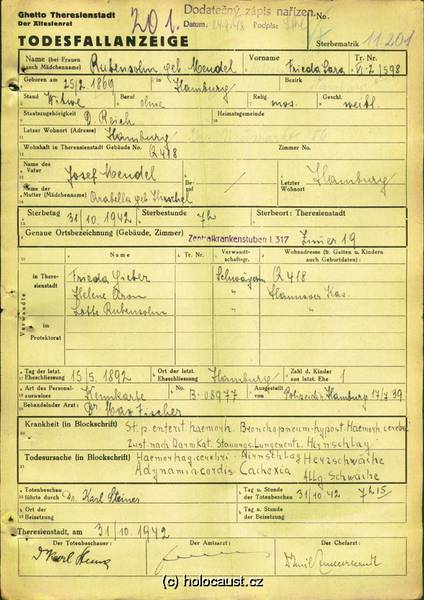 Ghetto Theresienstadt
Der Ältestenrat
201.
Dodatečný zápis nařízen.
Datum: Podpis:
No:
TODESFALLANZEIGE
Sterbematrik 11.201
Name (bei Frauen auch Mädchenname) Rubensohn geb. Mendel Vorname Frieda Sara Tr. Nr. VI-2/598
Geboren am 25/2 1869 in Hamburg Bezirk
Stand Witwe Beruf ohne Relig. mos. Geschl. weibl.
Staatszugehörigkeit D. Reich Heimatsgemeinde
Letzter Wohnort (Adresse) Hamburg
Wohnhaft in Theresienstadt Gebäude No. Q 418 Zimmer No.
Name des Vater Josef Mendel Beruf / Letzter Wohnort Hamburg
Name der Mutter (Mädchenname) Arabella geb.
Sterbetag 31/10 1942 Sterbestunde 7h Sterbeort: Theresienstadt
Genaue Ortsbezeichnung (Gebäude, Zimmer) Zentralkrankenstuben L 317 Zimmer 19
Verwandte
Name Tr. Nr. Verwandtschaftsgr. Wohnadresse (b. Gatten u. Kindern auch Geburtsdaten):
in Theresienstadt
Frieda Schwägerin Q 418
Helene Aron " Hannover Kas.
Lotte Rubensohn "
im Protektorat
Tag der letzten Eheschliessung 15/5. 1892 Ort der letzten Eheschliessung Hamburg Zahl d. Kinder aus letzter Ehe 1
Art des Personalausweises Kennkarte No. B-08977 Ausgestellt von Polizei Hamburg 17/7.39
Behandelnder Arzt: Dr. Max Fischer
Krankheit (in Blockschrift) St. p. enterit. haemorrh. Bronchopneum. hypost. Haemorrh. cerebri
Zust. nach Darmkat. Stauungs Lungenentz. Hirnschlag
Todesursache (in Blockschrift) Haemorrhag. cerebri - Hirnschlag Herzschwäche
Adynamia cordis Cachexia Allg. Schwäche
Totenbeschau führte durch Dr. Karl Steiner Tag u. Stunde der Totenbeschau 31/10 42 7h15
Ort der Beisetzung Tag u. Stunde der Beisetzung
Theresienstadt, am 31/10 1942
Der Totenbeschauer: Der Amtsarzt: Der Chefarzt:
(c) holocaust.cz